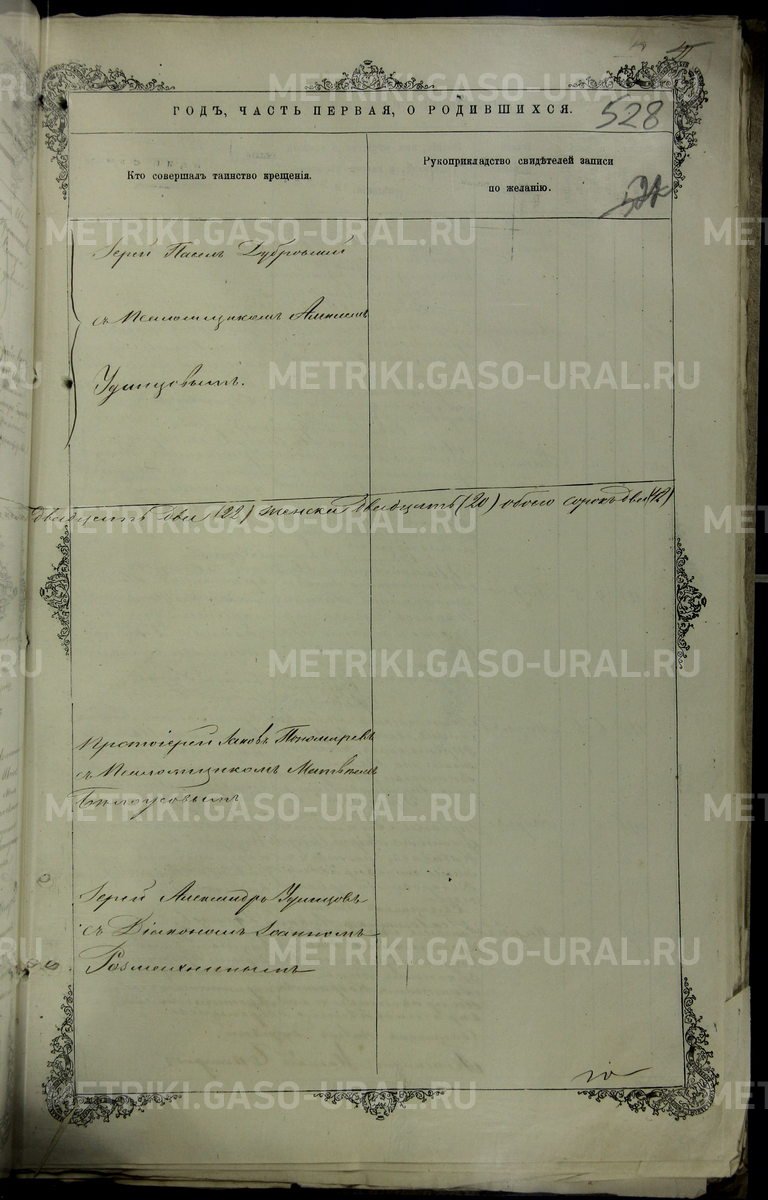 ГОДЪ, ЧАСТЬ ПЕРВАЯ, О РОДИВШИХСЯ.
528
Кто совершалъ таинство крещенія.
Рукоприкладство свидѣтелей записи
по желанію.
Іерей Павелъ Дубровскій
съ Псаломщикомъ Алексѣемъ
Удинцовымъ.
двадцать два (22) женска двадцать (20) обоего сорокъ два (42)
Протоіерей Іаковъ Пономаревъ
съ Псаломщикомъ Матвѣемъ
Бѣлоусовымъ
Іерей Александръ Удинцовъ
съ Діакономъ Іоанномъ
METRIKI.GASO-URAL.RU